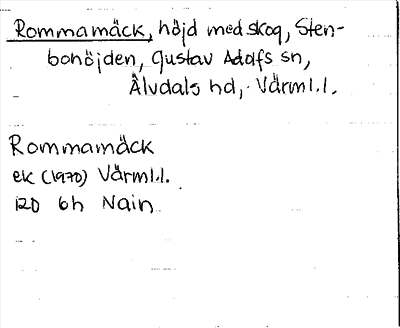 Rommamäck, höjd med skog, Sten-
bohöjden, Gustav Adolfs sn,
Älvdals hd, Värml.l.
Rommamäck
ek (1970) Värml.l.
12D 6h Nain